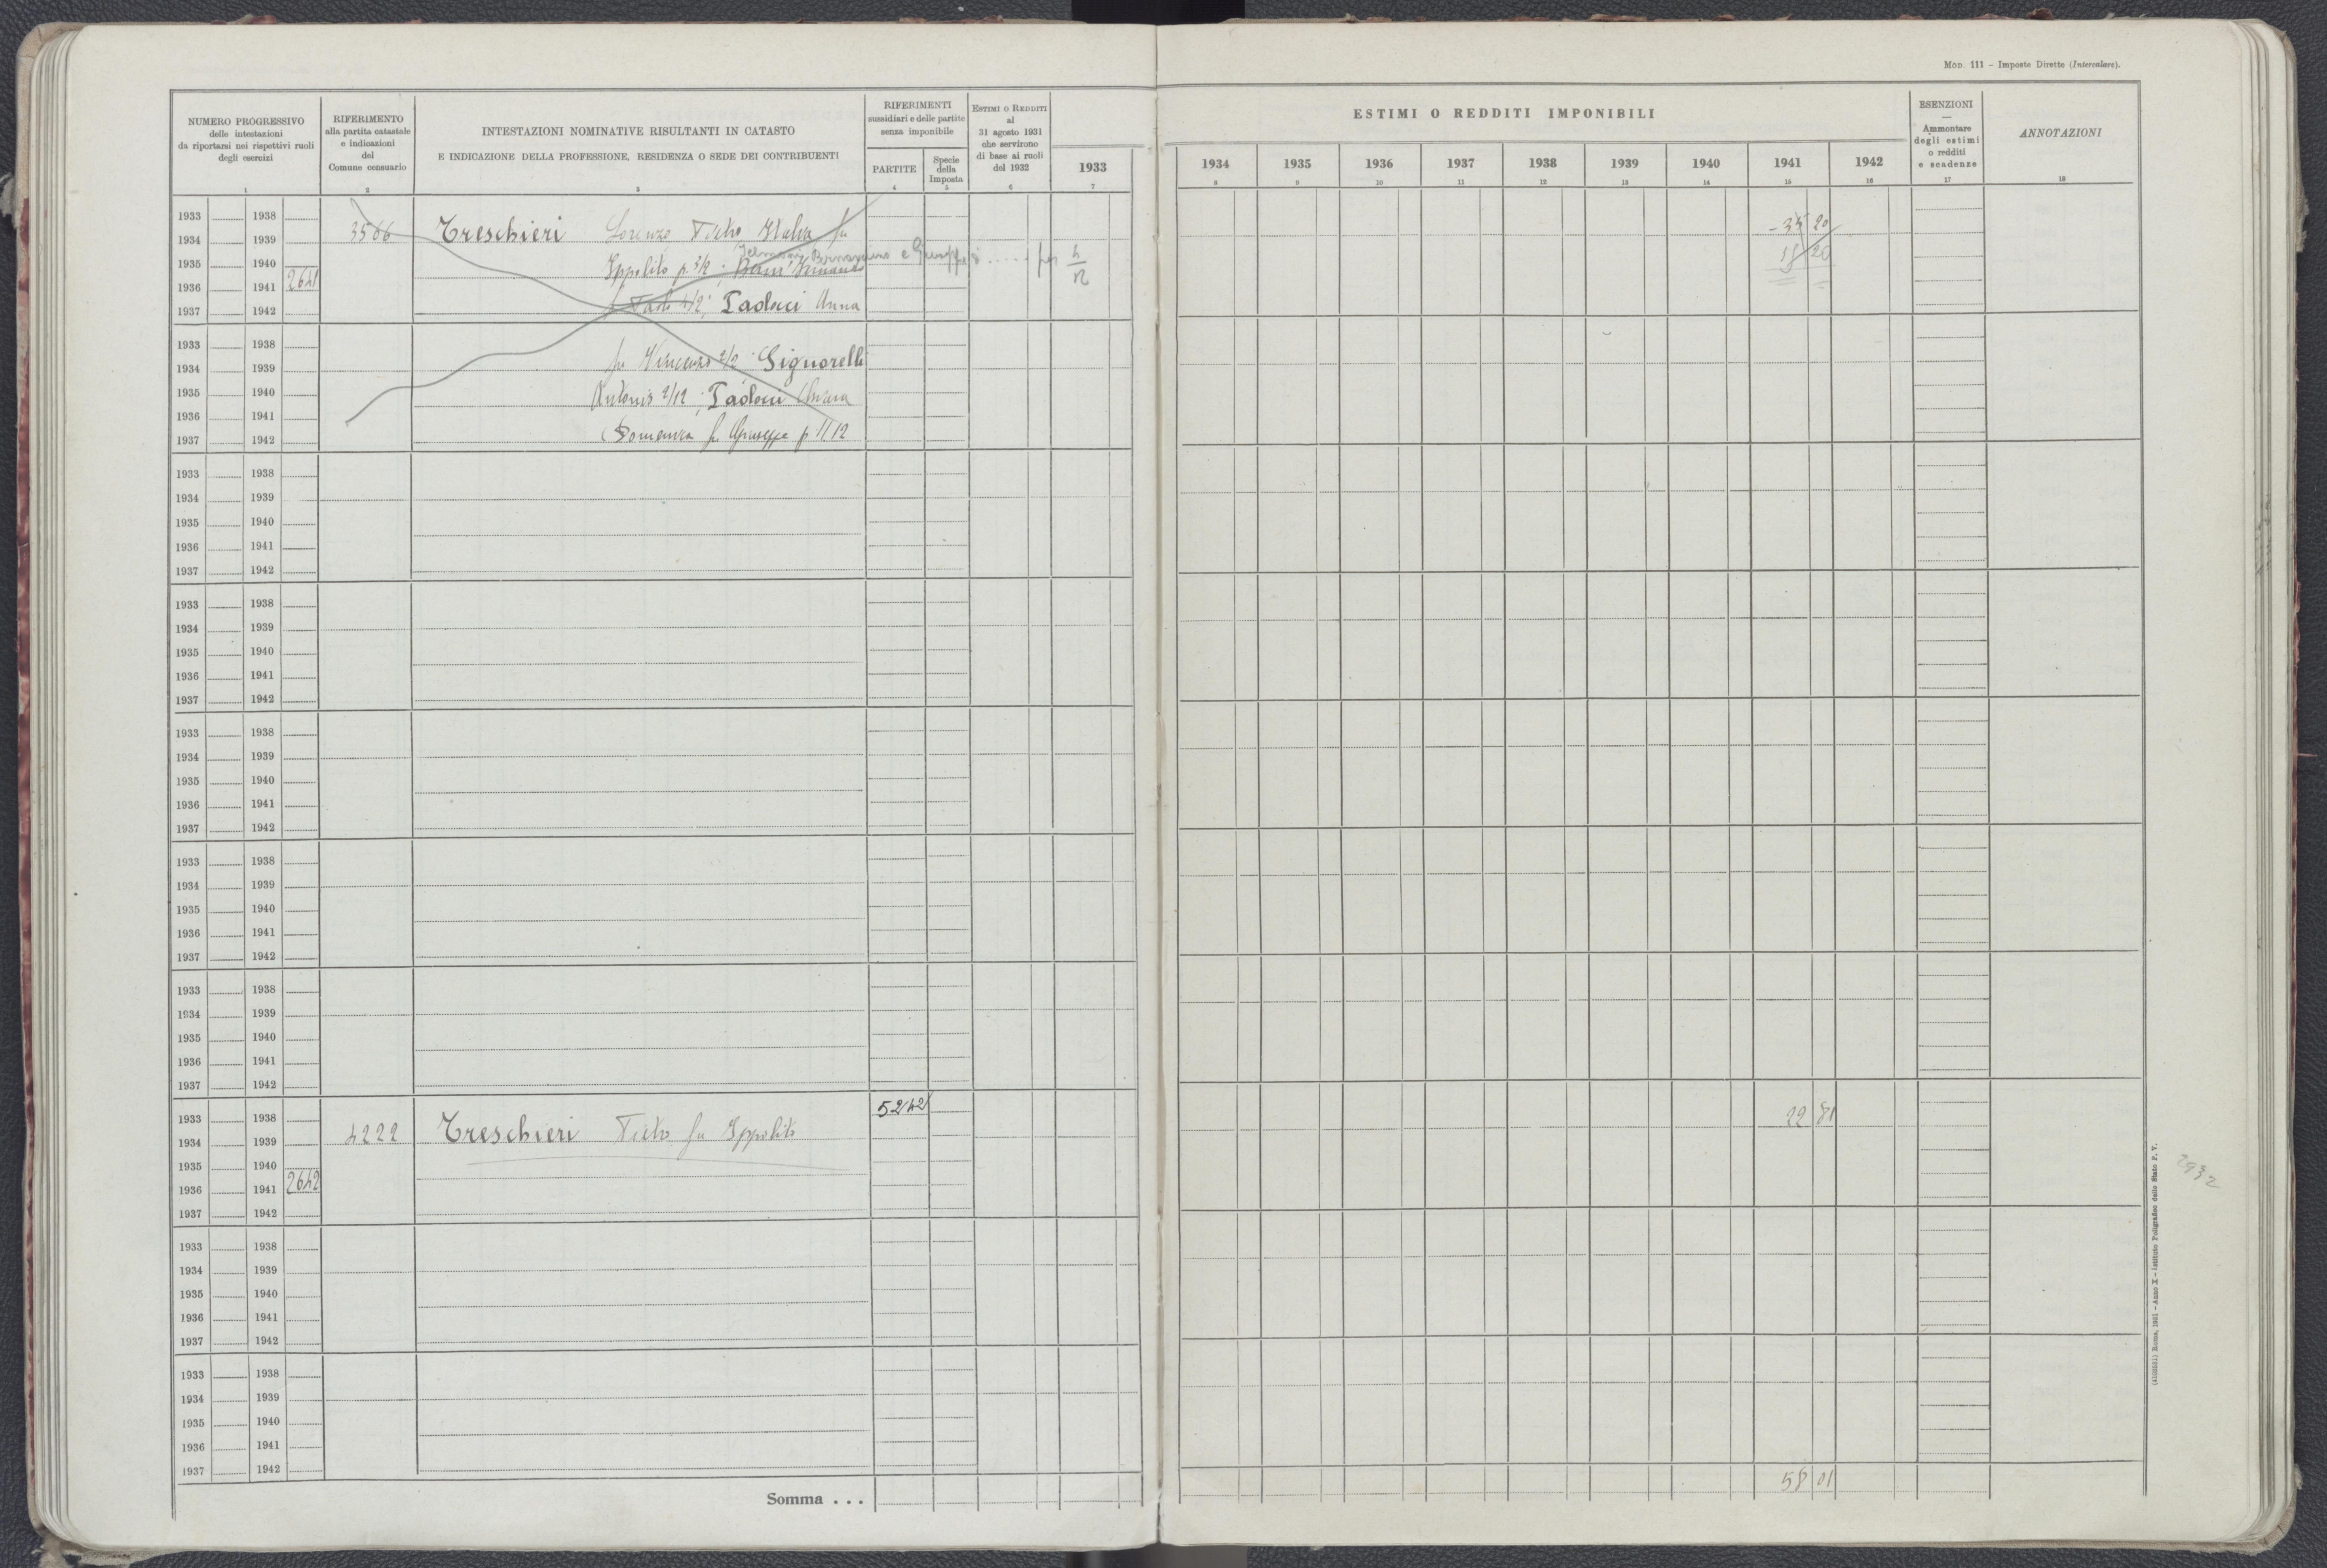 Mod. 111 - Imposte Dirette (Intercalare).
NUMERO PROGRESSIVO
delle intestazioni
da riportarsi nei rispettivi ruoli
degli esercizi
1
RIFERIMENTO
alla partita catastale
e indicazioni
del
Comune censuario
2
INTESTAZIONI NOMINATIVE RISULTANTI IN CATASTO
E INDICAZIONE DELLA PROFESSIONE, RESIDENZA O SEDE DEI CONTRIBUENTI
3
RIFERIMENTI
sussidiari e delle partite
senza imponibile
PARTITE
4
Specie
della
Imposta
5
ESTIMI O REDDITI
al
31 agosto 1931
che servirono
di base ai ruoli
del 1932
6
1933
7
ESTIMI O REDDITI IMPONIBILI
1934 1935 1936 1937 1938 1939 1940 1941 1942
8 9 10 11 12 13 14 15 16
ESENZIONI
Ammontare
degli estimi
o redditi
e scadenze
17
ANNOTAZIONI
18
1933 1938
3566 Treschieri Lorenzo Tieto Italia fu
35 20
1934 1939
1935 1940
Ippolito p. 3/12
per 4/12
18 20
1936 1941 2641
1937 1942
Paolucci Anna
1933 1938
1934 1939
fu Vincenzo 2/12 Signorelli
1935 1940
Antonio 2/12 ; Paolucci Chiara
1936 1941
1937 1942
Domenica fu Giuseppe p 1/12
1933 1938
1934 1939
1935 1940
1936 1941
1937 1942
1933 1938
1934 1939
1935 1940
1936 1941
1937 1942
1933 1938
1934 1939
1935 1940
1936 1941
1937 1942
1933 1938
1934 1939
1935 1940
1936 1941
1937 1942
1933 1938
1934 1939
1935 1940
1936 1941
1937 1942
1933 1938
5242
22 81
1934 1939
4222 Treschieri Tieto fu Ippolito
1935 1940
1936 1941 2642
1937 1942
1933 1938
1934 1939
1935 1940
1936 1941
1937 1942
1933 1938
1934 1939
1935 1940
1936 1941
1937 1942
Somma . . .
58 01
2932
Roma, 1931 - Anno X - Istituto Poligrafico dello Stato P. V.